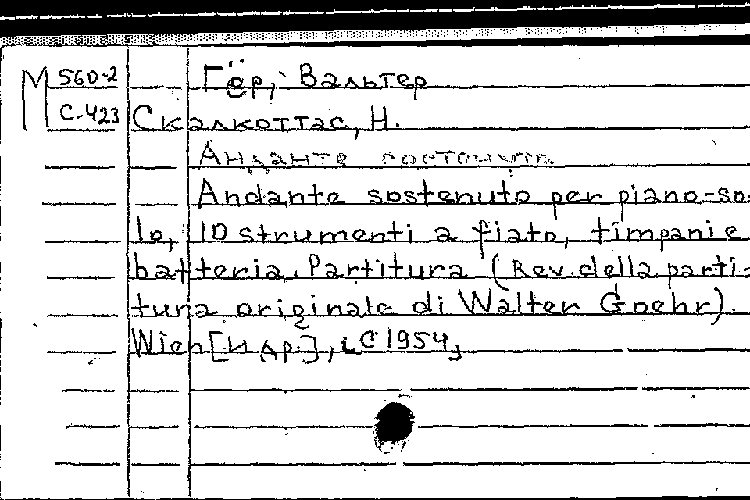 М 560-2 Гёр, Вальтер
С-423 Скалкоттас, Н.
Анданте состенуто
Andante sostenuto per piano-so-
lo, 10 strumenti a fiato, timpani e
batteria. Partitura (Rev. della parti-
tura originale di Walter Goehr).
Wien [и др.], с 1954,